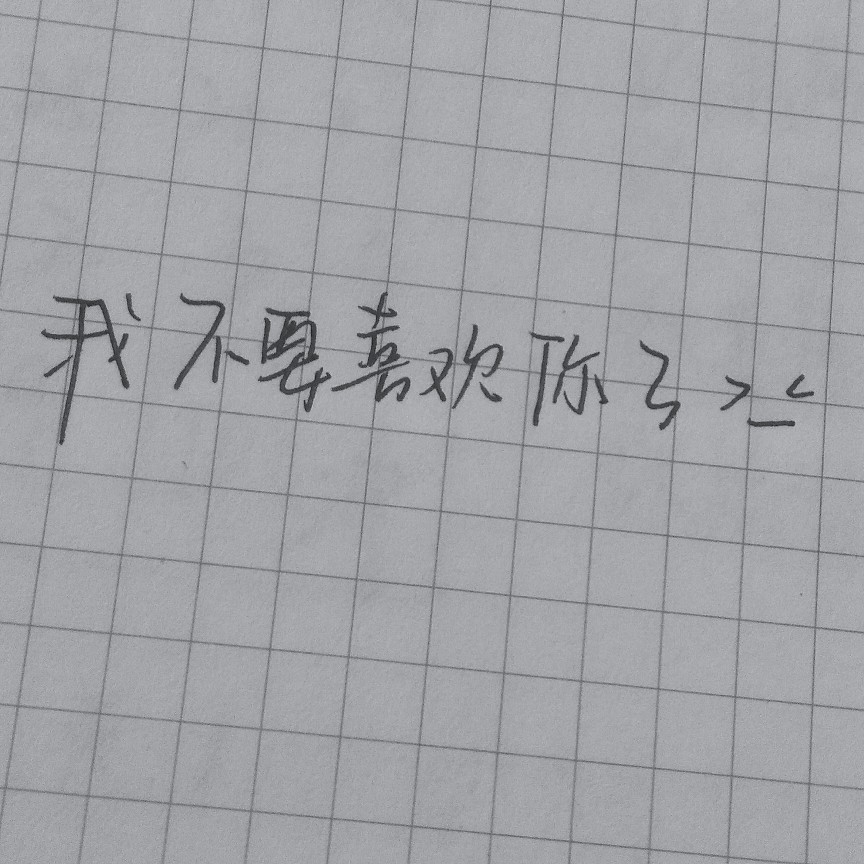 我不要喜欢你了>_<